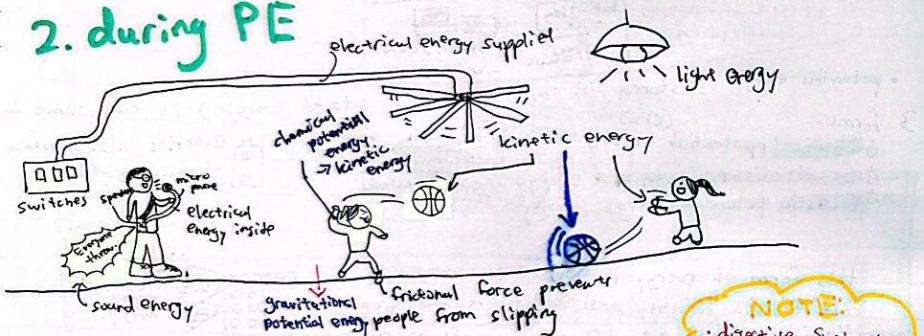 2. during PE
electrical energy supplied
light energy
chemical
potential
energy
→ kinetic
energy
kinetic energy
switches
speaker
micro
phone
electrical
energy inside
Everyone
throw..
sound energy
gravitational
potential energy
frictional force prevents
people from slipping
NOTE: